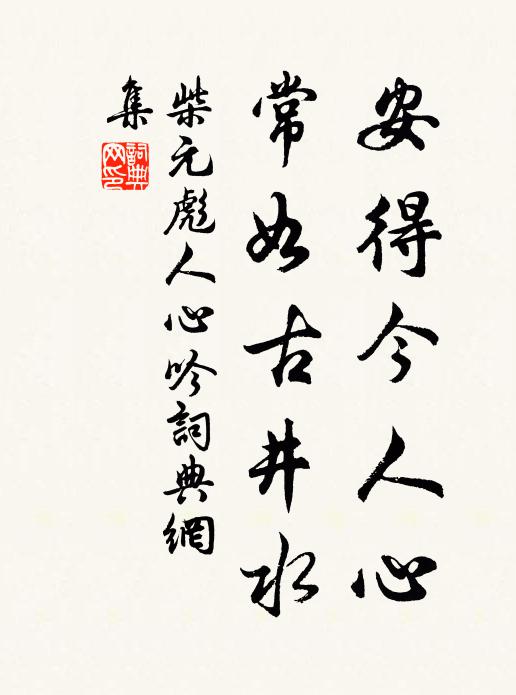 安得今人心
常如古井水
柴元彪人心吟詞典網
集
詞典
网印